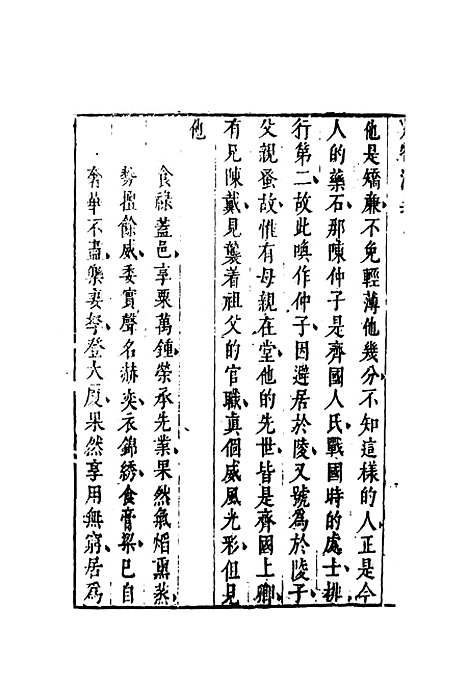 他是矯廉不免輕薄他幾分不知這樣的人正是今
人的藥石那陳仲子是齊國人氏戰國時的處士排
行第二故此喚作仲子因避居於陵又號爲於陵子
父親蚤故惟有母親在堂他的先世皆是齊國上卿
有兄陳戴見襲着祖父的官職真個威風光彩但見
他
食祿蓋邑享粟萬鍾榮承先業果然氣熖熏蒸
勢擅餘威委實聲名赫奕衣錦綉食膏粱已自
奢華不盡樂妻孥登大厦果然享用無窮居爲